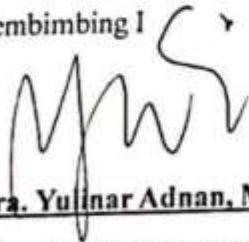 embimbing I
ra. Yulinar Adnan, M